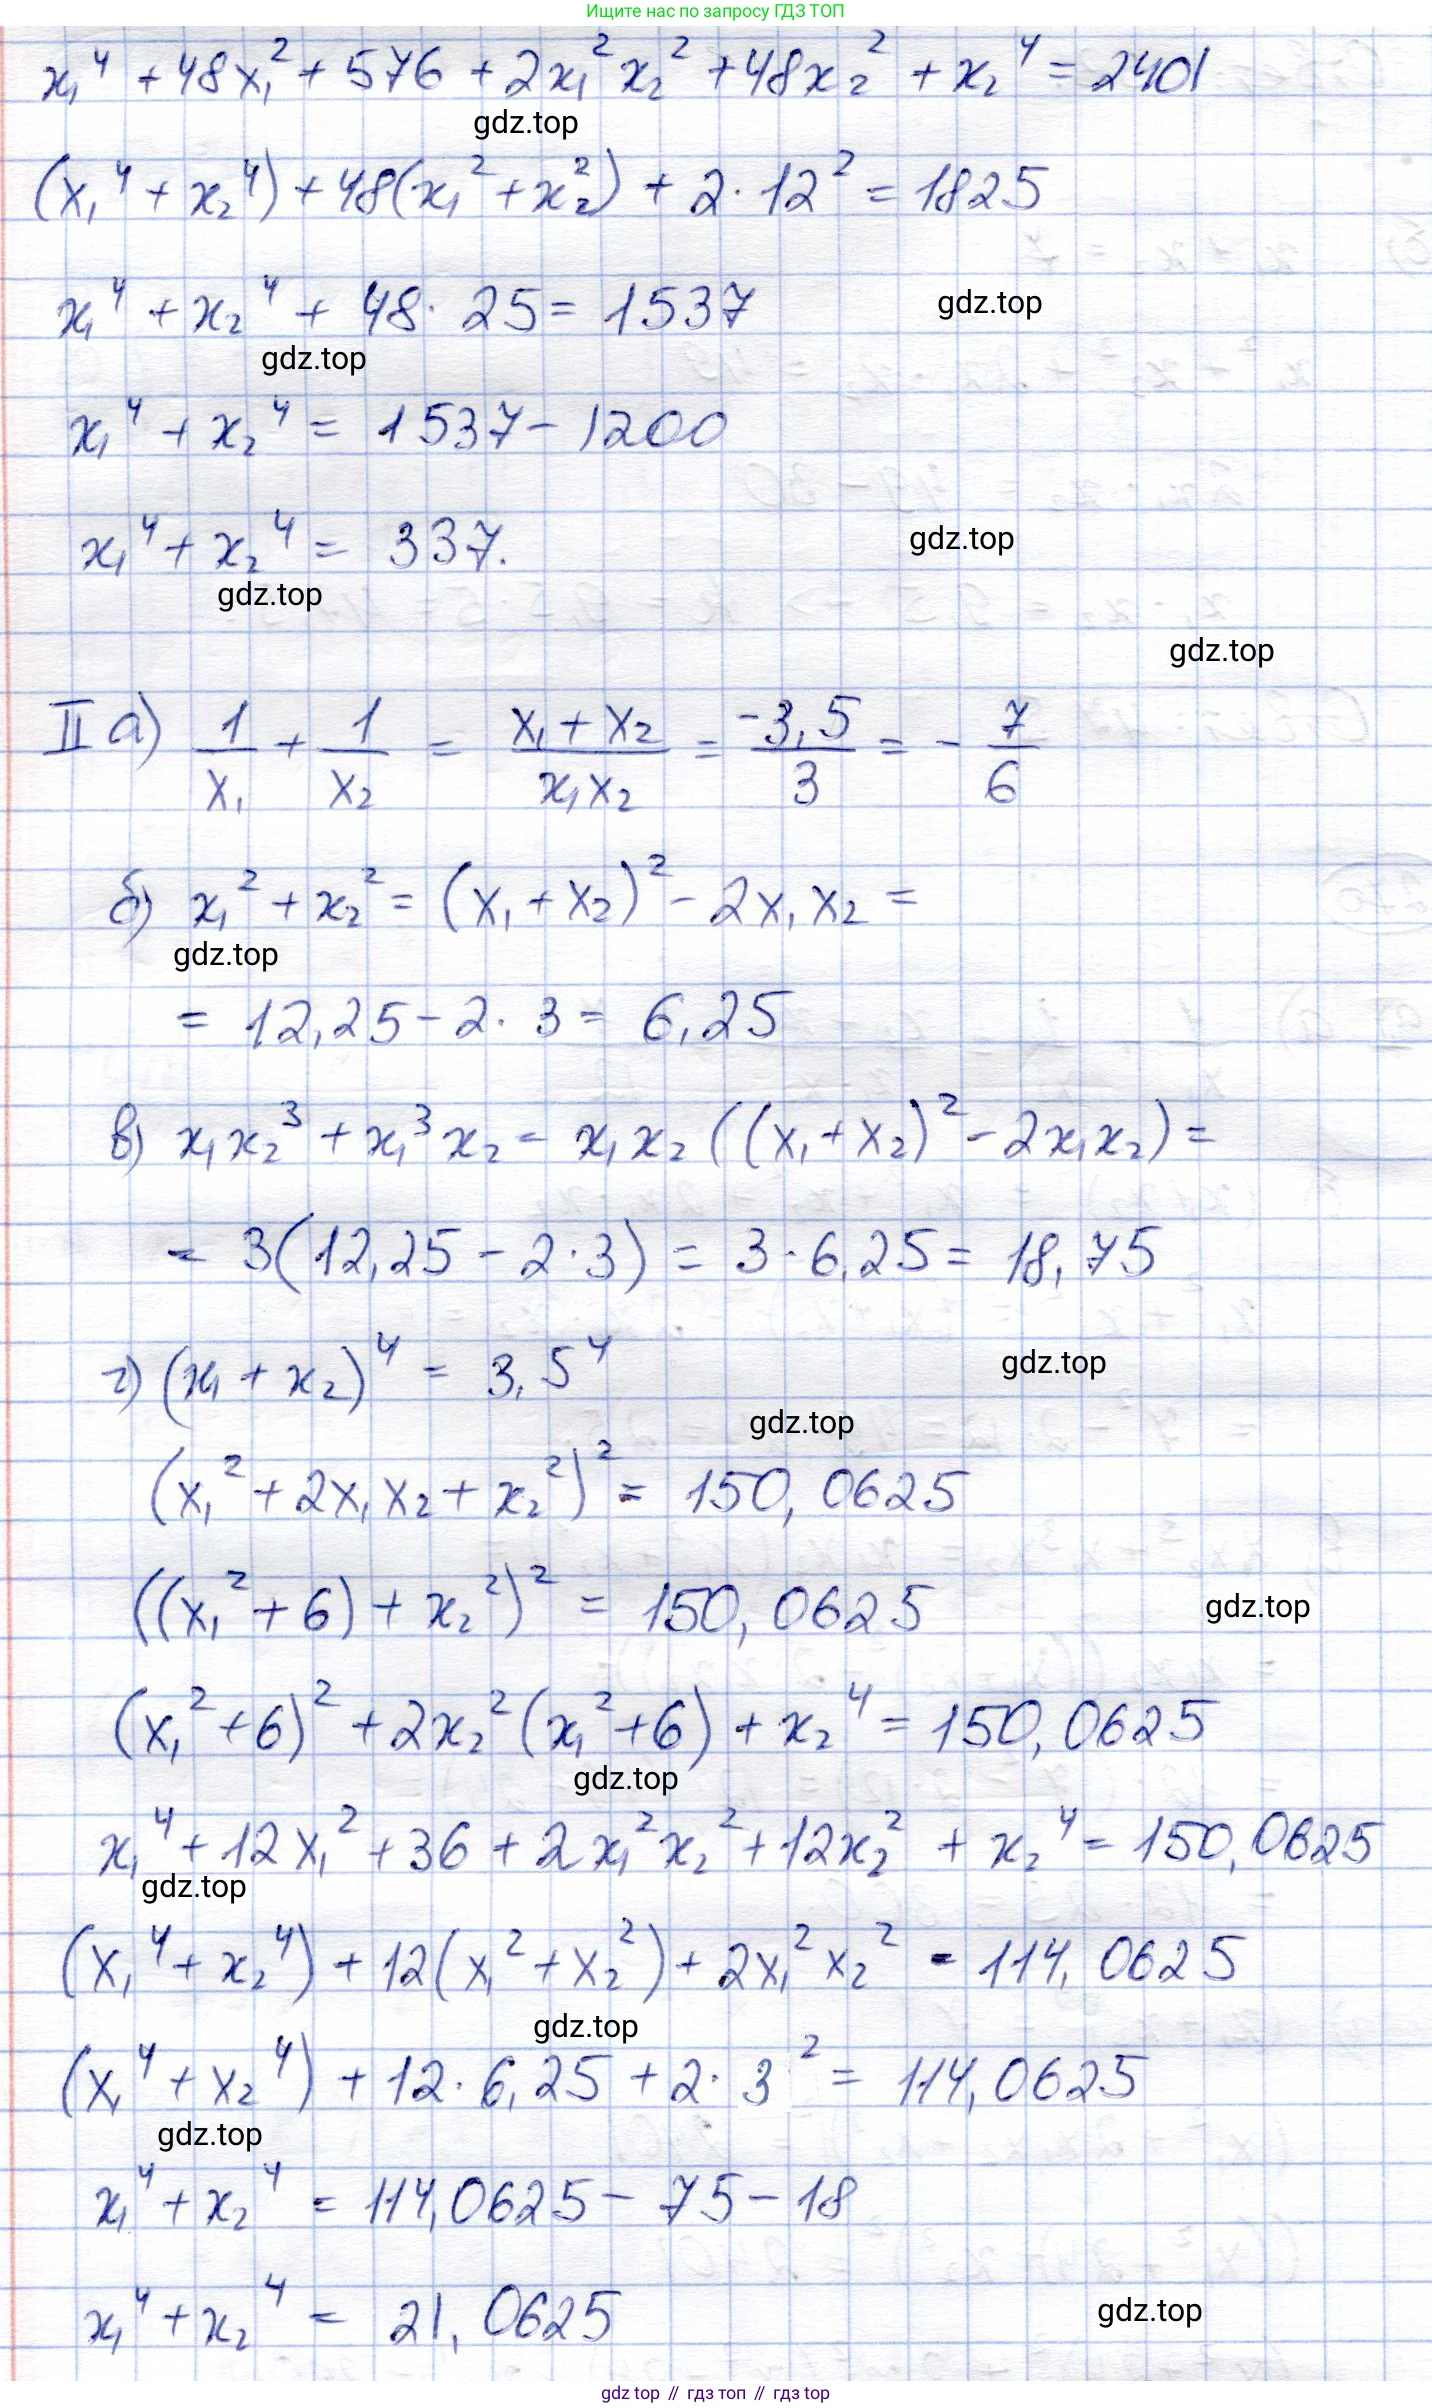 Ищите нас по запросу ГДЗ ТОП
x₁⁴ + 48x₁² + 576 + 2x₁²x₂² + 48x₂² + x₂⁴ = 2401
gdz.top
(x₁⁴ + x₂⁴) + 48(x₁² + x₂²) + 2·12² = 1825
x₁⁴ + x₂⁴ + 48·25 = 1537
gdz.top
gdz.top
x₁⁴ + x₂⁴ = 1537 - 1200
x₁⁴ + x₂⁴ = 337.
gdz.top
gdz.top
gdz.top
II а) 1/x₁ + 1/x₂ = (x₁ + x₂)/(x₁x₂) = -3,5/3 = -7/6
б) x₁² + x₂² = (x₁ + x₂)² - 2x₁x₂ =
gdz.top
= 12,25 - 2·3 = 6,25
в) x₁x₂³ + x₁³x₂ = x₁x₂((x₁ + x₂)² - 2x₁x₂) =
= 3(12,25 - 2·3) = 3·6,25 = 18,75
г) (x₁ + x₂)⁴ = 3,5⁴
gdz.top
gdz.top
(x₁² + 2x₁x₂ + x₂²)² = 150,0625
((x₁² + 6) + x₂²)² = 150,0625
gdz.top
(x₁² + 6)² + 2x₂²(x₁² + 6) + x₂⁴ = 150,0625
gdz.top
x₁⁴ + 12x₁² + 36 + 2x₁²x₂² + 12x₂² + x₂⁴ = 150,0625
gdz.top
(x₁⁴ + x₂⁴) + 12(x₁² + x₂²) + 2x₁²x₂² = 114,0625
gdz.top
(x₁⁴ + x₂⁴) + 12·6,25 + 2·3² = 114,0625
gdz.top
x₁⁴ + x₂⁴ = 114,0625 - 75 - 18
x₁⁴ + x₂⁴ = 21,0625
gdz.top
gdz top // гдз топ // гдз top